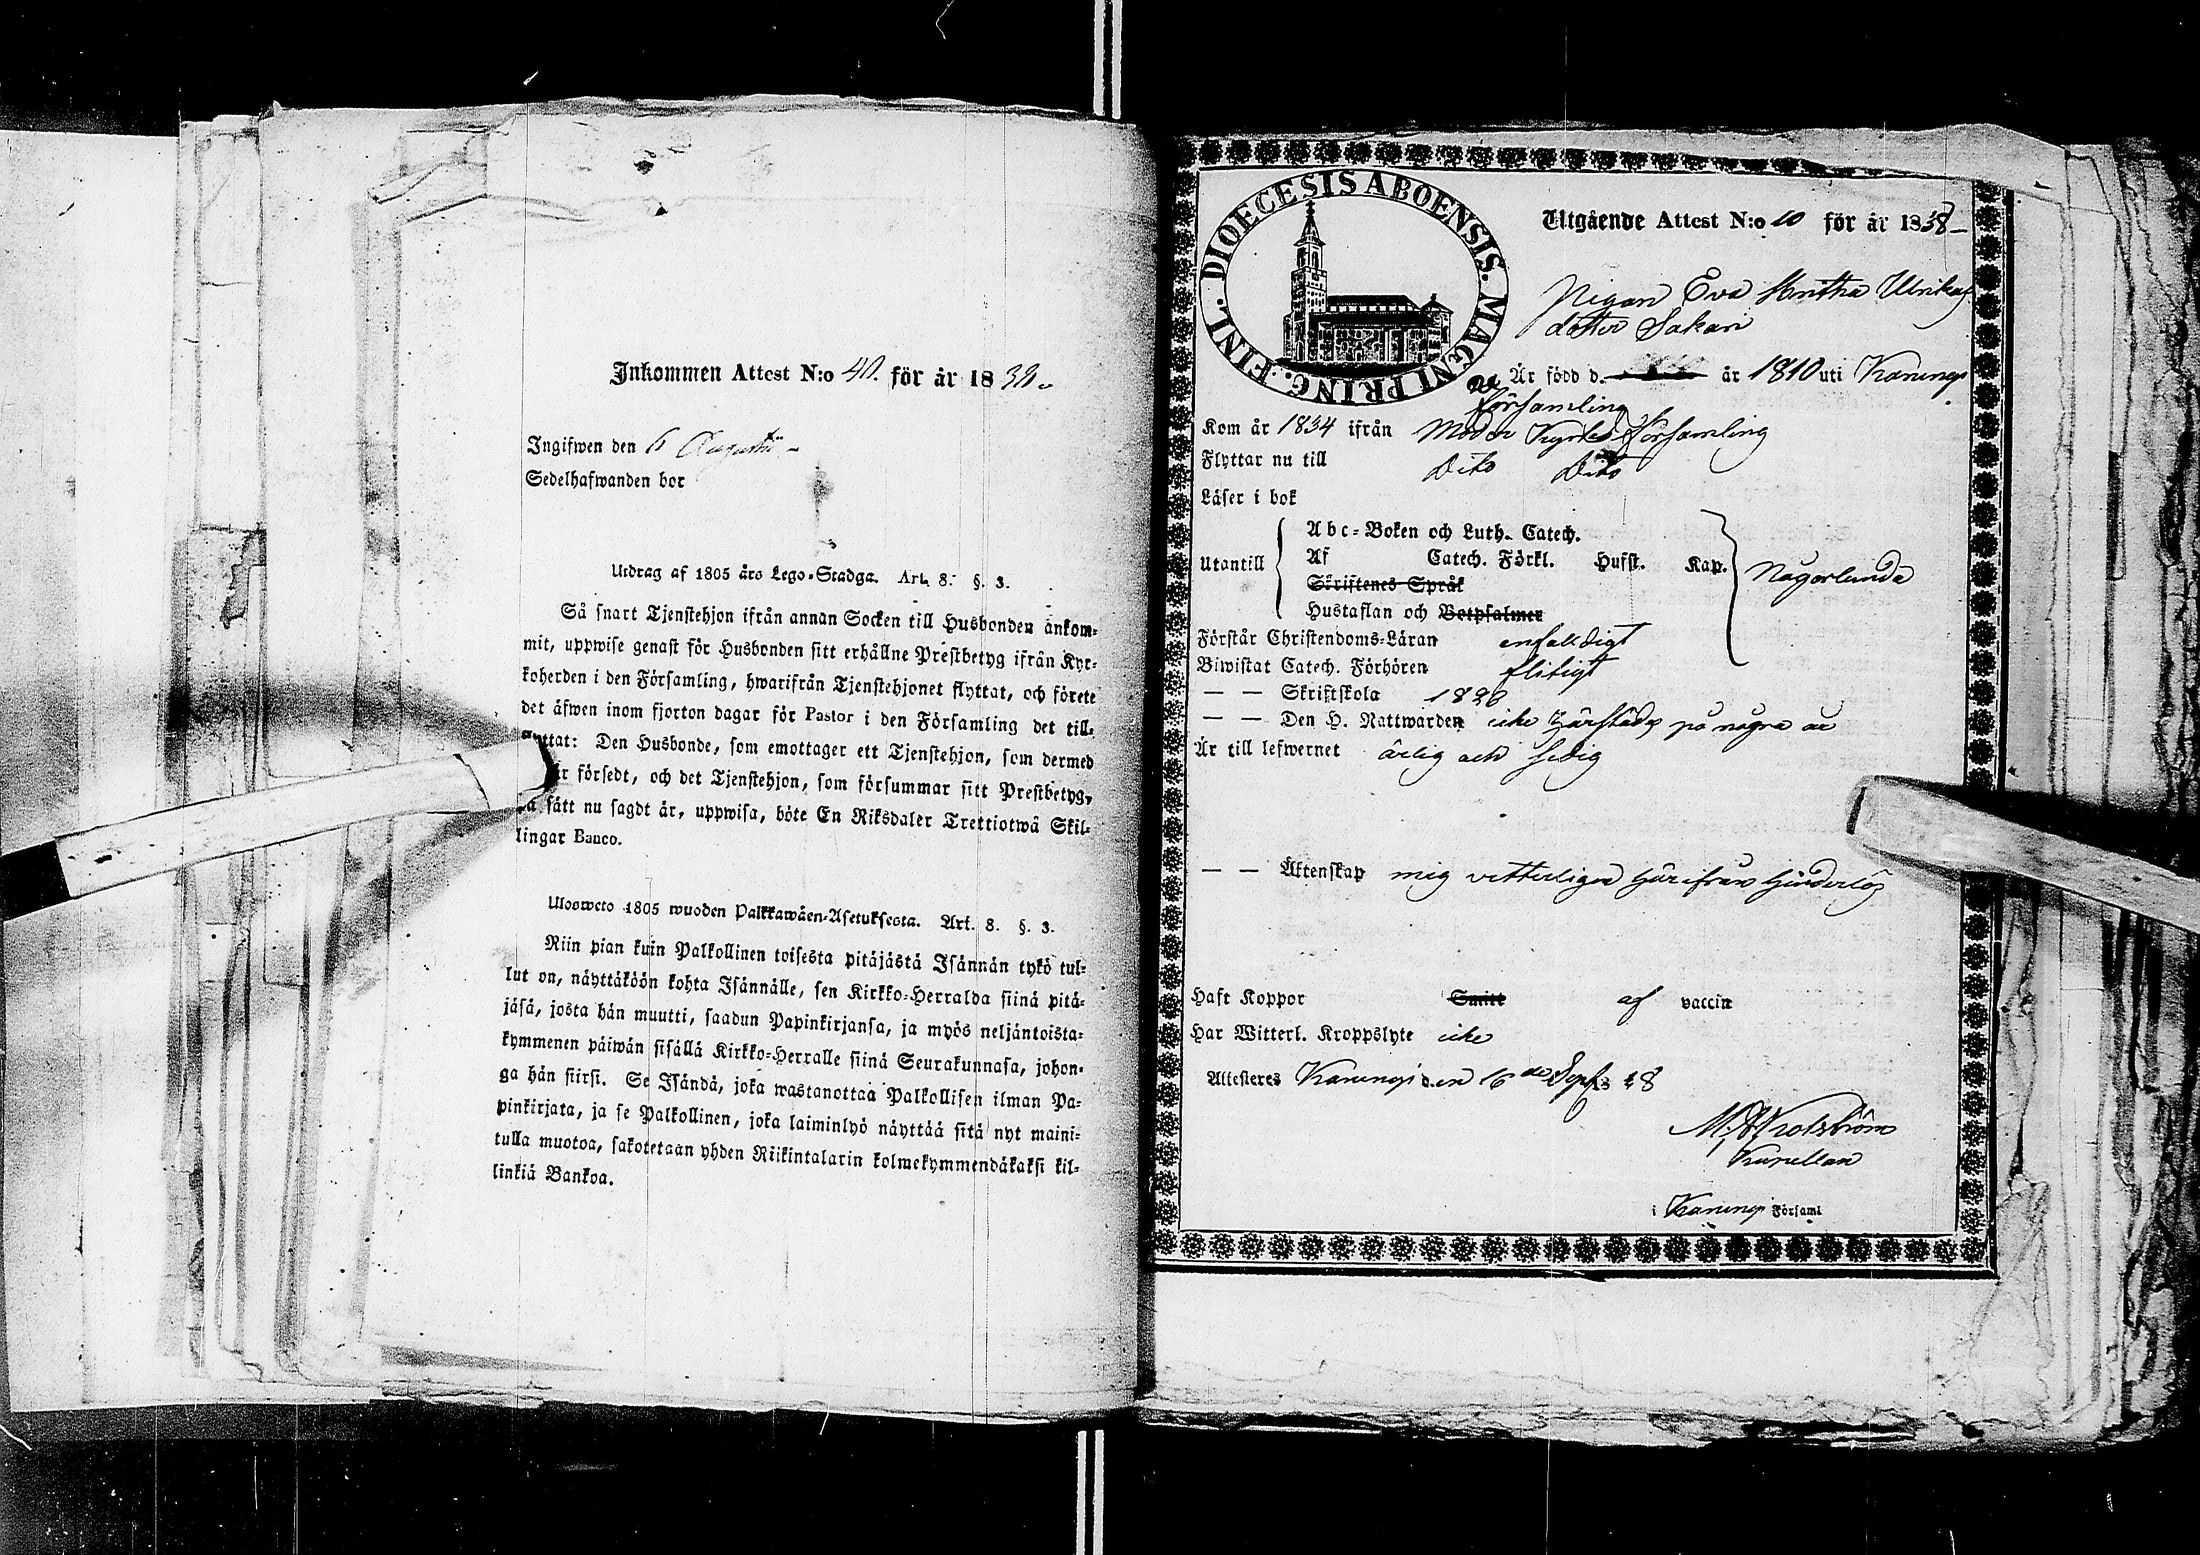 Inkommen Attest N:o 40. för år 1838.
Ingifwen den 6 Augusti
Sedelhafwanden bor
Utdrag af 1805 års Lego-Stadga. Art. 8. §. 3.
Så snart Tjenstehjon ifrån annan Socken till Husbonden ankom-
mit, uppwise genast för Husbonden sitt erhållne Prestbetyg ifrån Kyr-
koherden i den Församling, hwarifrån Tjenstehjonet flyttat, och förete
det äfwen inom fjorton dagar för Pastor i den Församling det till-
flyttat: Den Husbonde, som emottager ett Tjenstehjon, som dermed
är försedt, och det Tjenstehjon, som försummar sitt Prestbetyg,
på sätt nu sagdt är, uppwisa, böte En Riksdaler Trettiotwå Skil-
lingar Banco.
Ulosweto 1805 wuoden Palkkawäen-Asetuksesta. Art. 8. §. 3.
Niin pian kuin Palkollinen toisesta pitäjästä Isännän tykö tul-
lut on, näyttäköön kohta Isännälle, sen Kirkko-Herralda siinä pitä-
jäsä, josta hän muutti, saadun Papinkirjansa, ja myös neljäntoista-
kymmenen päiwän sisällä Kirkko-Herralle siinä Seurakunnasa, johon-
ga hän siirsi. Se Isändä, joka wastanottaa Palkollisen ilman Pa-
pinkirjata, ja se Palkollinen, joka laiminlyö näyttää sitä nyt maini-
tulla muotoa, sakotetaan yhden Riikintalarin kolmekymmendäkaksi kil-
linkiä Bankoa.
DIOECESIS ABOENSIS. MAGNI PRINC. FINL.
Utgående Attest N:o 10 för år 1838
Pigan Eva Ulrika
dotter Sakari
Är född d. år 1810 uti Karungi
församling
Kom år 1834 ifrån Moder Kyrko församling
Flyttar nu till Dito Dito
Läser i bok
Utantill
Abc-Boken och Luth. Catech.
Af Catech. Förkl. Husst. Kap.
Skriftenes Språk
Hustaflan och Botpsalmer
Någorlunda
Förstår Christendoms-Läran enfaldigt
Biwistat Catech. Förhören flitigt
— — Skriftskola 1826
— — Den H. Nattwarden icke härstädes på några år
Är till lefwernet ärlig och sedig
— — Äktenskap mig vetterligen härifrån hinderlös
Haft Koppor Smitt af vaccin
Har Witterl. Kroppslyte icke
Attesteres Karungi den 16 de Sept 38
Kapellan
i Karungi Församl